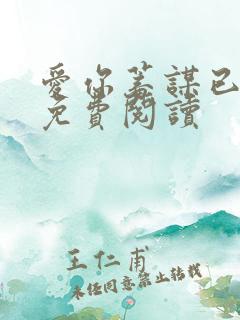 愛你蓄謀已
免費閱讀
王仁甫
未經同意禁止轉載